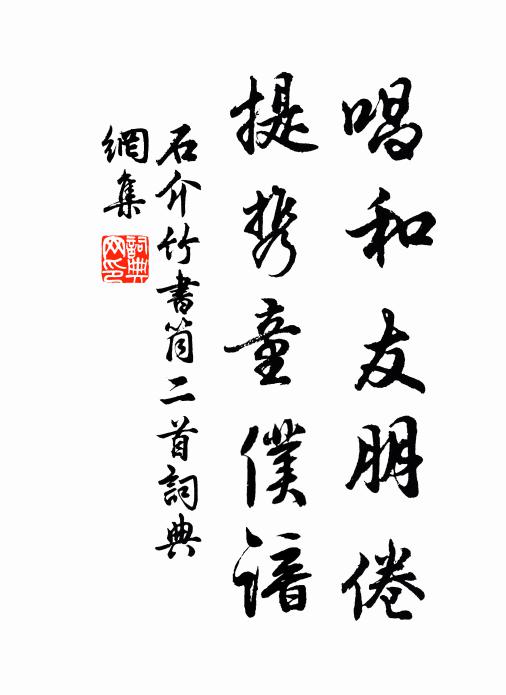 唱和友朋倦
提携童僕諳
石介竹書筒二首詞典
網集
詞典
网印